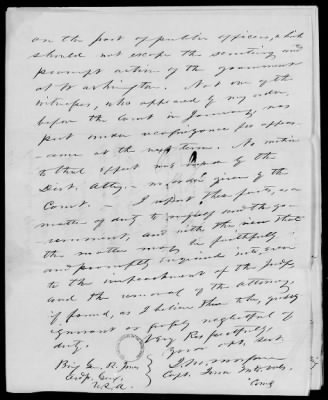 on the part of public officers, which
should not escape the scrutiny and
prompt action of the government
at Washington. Not one of the
witnesses, who appeared by my order,
before the Court in January, was
put under recognizance for appear-
-ance at the next term. No motion
to that effect was made by the
Dist. Atty. - nor order given by the
Court. - I report these facts, as a
matter of duty to myself and the go-
vernment, and with the view that
the matter may be faithfully
and promptly inquired into, even
to the impeachment of the Judge,
and the removal of the Attorney,
if found, as I believe them to be, grossly
ignorant or grossly neglectful of
duty.
Very Respectfully,
Your obt. Servt.
Brig Gen. R. Jones
Adjt. Genl.
U.S.A.
Capt.
Comg